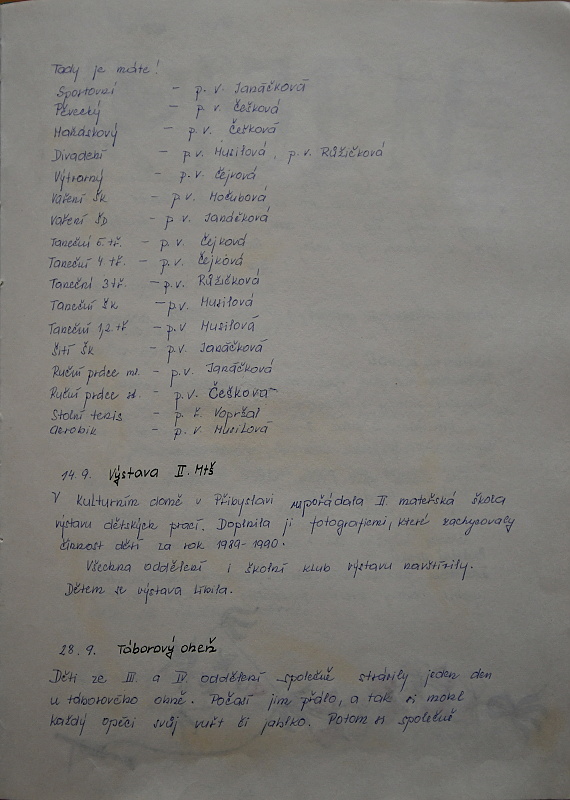 Tady je máte!
Sportovní – p. v. Janáčková
Pěvecký – p. v. Češková
Maňáskový – p. v. Češková
Divadelní – p. v. Musilová, p. v. Růžičková
Výtvarný – p. v. Čejková
Vaření ŠK – p. v.
Vaření ŠD – p. v. Janáčková
Taneční 5. tř. – p. v. Čejková
Taneční 4 tř. – p. v. Čejková
Taneční 3 tř. – p. v. Růžičková
Taneční ŠK – p. v. Musilová
Taneční 1,2 tř – p. v. Musilová
Šití ŠK – p. v. Janáčková
Ruční práce ml. – p. v. Janáčková
Ruční práce st. – p. v. Češková
Stolní tenis – p. ř. Vopršal
Aerobik – p. v. Musilová
14.9. Výstava II. MŠ
V Kulturním domě v Přibyslavi uspořádala II. mateřská škola
výstavu dětských prací. Doplnila ji fotografiemi, které zachycovaly
činnost dětí za rok 1989-1990.
Všechna oddělení i školní klub výstavu navštívily.
Dětem se výstava líbila.
28.9. Táborový oheň
Děti ze III. a IV. oddělení společně strávily jeden den
u táborového ohně. Počasí jim přálo, a tak si mohl
každý opéci svůj vuřt či jablko. Potom si společně